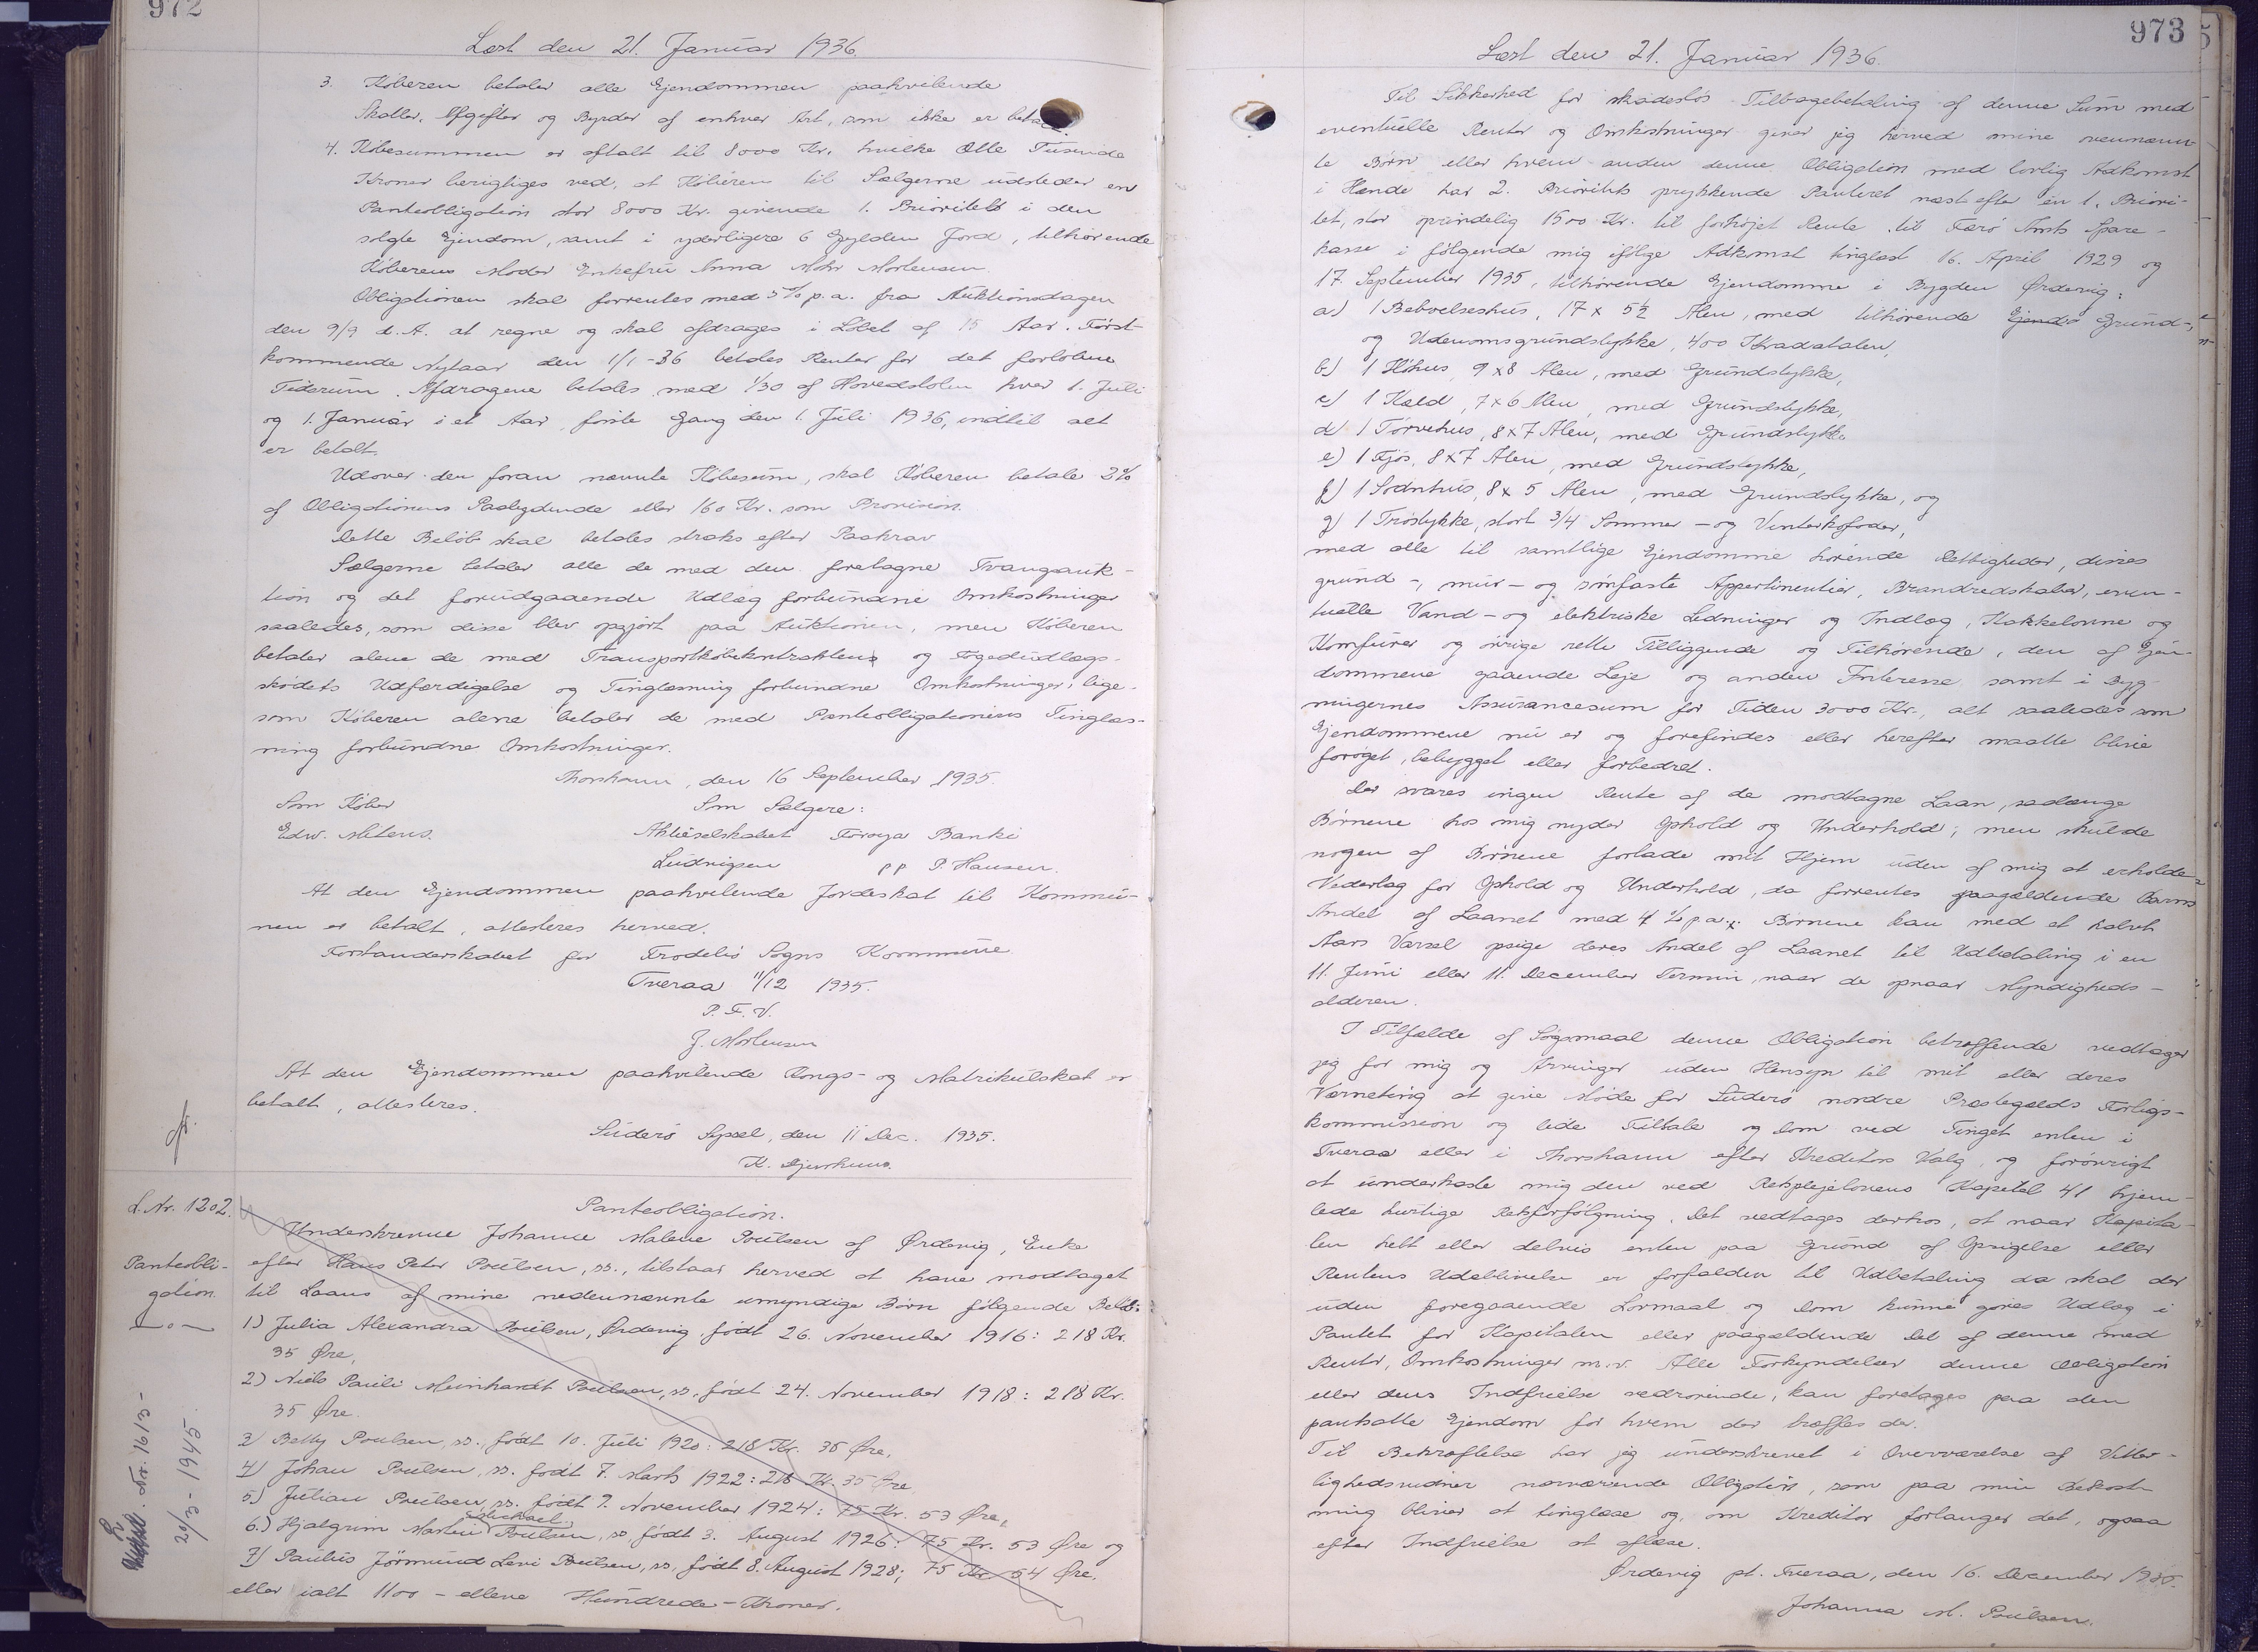 972
Læst den 21. Januar 1936
3. Køberen betaler alle Ejendommen paahvilende
Skatter, Afgifter og Byrder af enhver Art, som ikke er betalt.
4. Købesummen er aftalt til 8000 Kr. hvilke Otte Tusinde
Kroner berigtiges ved, at Køberen til Sælgerne udsteder en
Panteobligation stor 8000 Kr. givende 1. Prioritet i den
solgte Ejendom, samt i yderligere 6 Gylden Jord, tilhørende
Køberens Moder Enkefru Anna Mohr Mortensen.
Obligationen skal forrentes med 5% p.a. fra Auktionsdagen
den 9/9 d.A. at regne og skal afdrages i Løbet af 15 Aar. Først-
kommende Nytaar den 1/1-36 betales Renter for det forløbne
Tidsrum. Afdragene betales med 1/30 af Hovedstolen hver 1. Juli
og 1. Januar i et Aar, første Gang den 1. Juli 1936, indtil alt
er betalt.
Udover den foran nævnte Købesum, skal Køberen betale 2%
af Obligationens Paalydende eller 160 Kr. som Provision.
Dette Beløb skal betales straks efter Paakrav
Sælgerne betaler alle de med den foretagne Tvangauk-
tion og det forudgaaende Udlæg forbundne Omkostninger
saaledes, som disse blev opgjort paa Auktionen, men Køberen
betaler alene de med Transportkøbekontraktens og Fogedudlægs-
skødets Udfærdigelse og Tinglæsning forbundne Omkostninger, lige-
som Køberen alene betaler de med Panteobligationens Tinglæs-
ning forbundne Omkostninger.
Thorshavn, den 16 September 1935.
Som Køber Som Sælgere:
Edw. Mitens. Aktieselskabet Føroya Banki
Ludvigsen pp P. Hansen.
At den Ejendommen paahvilende Jordeskat til Kommu-
nen er betalt, attesteres herved.
Forstanderskabet for Frodebø Sogns Kommune
Tveraa 11/12 1935.
P. F. V.
J. Mortensen
At den Ejendommen paahvilende Kongs- og Matrikulskat er
betalt, attesteres.
Suderø Syssel, den 11 Dec. 1935.
K. Djurhuus.
L. Nr. 1202.
Panteobli-
gation
Panteobligation.
Underskrevne Johanne Malene Poulsen af Ørdevig, Enke
efter Hans Peter Poulsen, ss., tilstaar herved at have modtaget
til Laans af mine nedennævnte umyndige Børn følgende Beløb:
1) Julia Alexandra Poulsen, Ørdevig født 26. November 1916: 218 Kr.
35 Øre,
2) Niels Pauli Meinhardt Poulsen, ss, født 24. November 1918: 218 Kr.
35 Øre.
3) Betty Poulsen, ss., født 10. Juli 1920: 218 Kr. 35 Øre,
4) Johan Poulsen, ss. født 7. Marts 1922: 218 Kr. 35 Øre,
5) Julian Poulsen, ss. født 9. November 1924: 75 Kr. 53 Øre,
Michael
6.) Hjalgrim Martin Poulsen, ss, født 3. August 1926: 75 Kr. 53 Øre og
7) Paulus Jörmund Levi Poulsen, ss, født 8. August 1928; 75 Kr 54 Øre.
eller ialt 1100 - elleve Hundrede - Kroner.
Nr. 1613-
20/3-1945.
973
Læst den 21. Januar 1936.
Til Sikkerhed for skadesløs Tilbagebetaling af denne Sum med
eventuelle Renter og Omkostninger giver jeg herved mine ovennævn-
te Børn eller hvem anden denne Obligation med lovlig Adkomst
i Hænde har 2. Prioritets prykkende Panteret næst efter en 1. Priori-
tet, stor oprindelig 1500 Kr. til forhøjet Rente til Færø Amts Spare-
kasse i følgende mig ifølge Adkomst tinglæst 16. April 1929 og
17. September 1935, tilhørende Ejendomme i Bygden Ørdevig:
a) 1 Beboelseshus, 17 x 5½ Alen, med tilhørende Ejendo Grund-,
og Udenomsgrundstykke, 400 Kvadratalen,
b) 1 Höhus 9 x 8 Alen, med Grundstykke,
c) 1 Kæld, 7 x 6 Alen, med Grundstykke,
d) 1 Törvehus, 8 x 7 Alen, med Grundstykke
e) 1 Fjøs, 8 x 7 Alen, med Grundstykke,
f) 1 Sodnhus, 8 x 5 Alen, med Grundstykke, og
g) 1 Trøstykke, stort 3/4 Sommer - og Vinterkofoder,
med alle til samtlige Ejendomme hørende Rettigheder, disses
grund-, mur- og sømfaste Appertinentier, Brandredskaber, even-
tuelle Vand- og elektriske Ledninger og Indlæg, Kakkelovne og
Komfurer og øvrige rette Tilliggende og Tilhørende, den af Ejen-
dommene gaaende Leje og anden Interesse samt i Byg-
ningernes Assurancesum for Tiden 3000 Kr., alt saaledes som
Ejendommene nu er og forefindes eller herefter maatte blive
forøget, bebygget eller forbedret.
Der svares ingen Rente af de modtagne Laan, saalænge
Børnene hos mig nyder Ophold og Underhold; men skulde
nogen af Børnene forlade mit Hjem uden af mig at erholde
Vederlag for Ophold og Underhold, da forrentes paagældende Barns
Andel af Laanet med 4 % p.a. Børnene kan med et halvt
Aars Varsel opsige deres Andel af Laanet til Udbetaling i en
11. Juni eller 11. December Termin, naar de opnaar Myndigheds-
alderen.
I Tilfælde af Søgsmaal denne Obligation betræffende vedtager
jeg for mig og Arvinger uden Hensyn til mit eller deres
Værneting at give Møde for Suderø nordre Præstegælds Forligs-
kommission og lide Tiltale og Dom ved Tinget enten i
Tveraa eller i Thorshavn efter Kreditors Valg, og forøvrigt
at underkaste mig den ved Retsplejelovens Kapitel 41 hjem-
lede hurtige Retsforfølgning. Det vedtages derhos, at naar Kapita-
len helt eller delvis enten paa Grund af Opsigelse eller
Rentens Udeblivelse er forfalden til Udbetaling da skal der
uden foregaaende Lovmaal og Dom kunne gøres Udlæg i
Pantet for Kapitalen eller paagældende Del af denne med
Renter, Omkostninger m.v. Alle Forkyndelser denne Obligation
eller dens Indfrielse vedrørende, kan foretages paa den
pantsatte Ejendom for hvem der træffes der.
Til Bekræftelse har jeg underskrevet i Overværelse af Vitter-
lighedsvidner nærværende Obligation, som paa min Bekost-
ning bliver at tinglæse og, om Kreditor forlanger det, ogsaa
efter Indfrielse at aflæse.
Ørdevig pt. Tveraa, den 16. December 1935.
Johanna M. Poulsen.